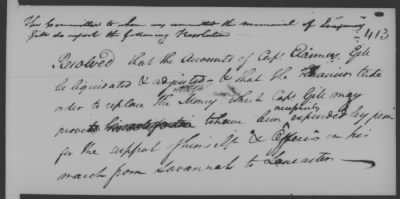 The Committee to whom was committed the memorial of
Gill do report the following Resolution
413
Resolved that the Accounts of Capt Erasmus Gill
be liquidated & adjusted & that the Treasurer take
order to replace the Money which Capt Gill may
necessarily
prove to have been expended by him
for the support of himself & Officers in his
march from Savannah to Lancaster